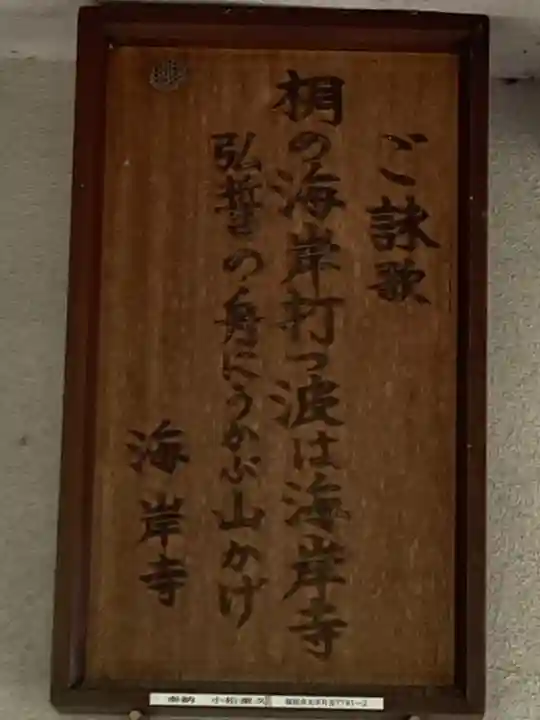 ご詠歌
桐の海岸打つ波は海岸寺
弘誓の舟にうかぶ山かげ
海岸寺
奉納 小松重久